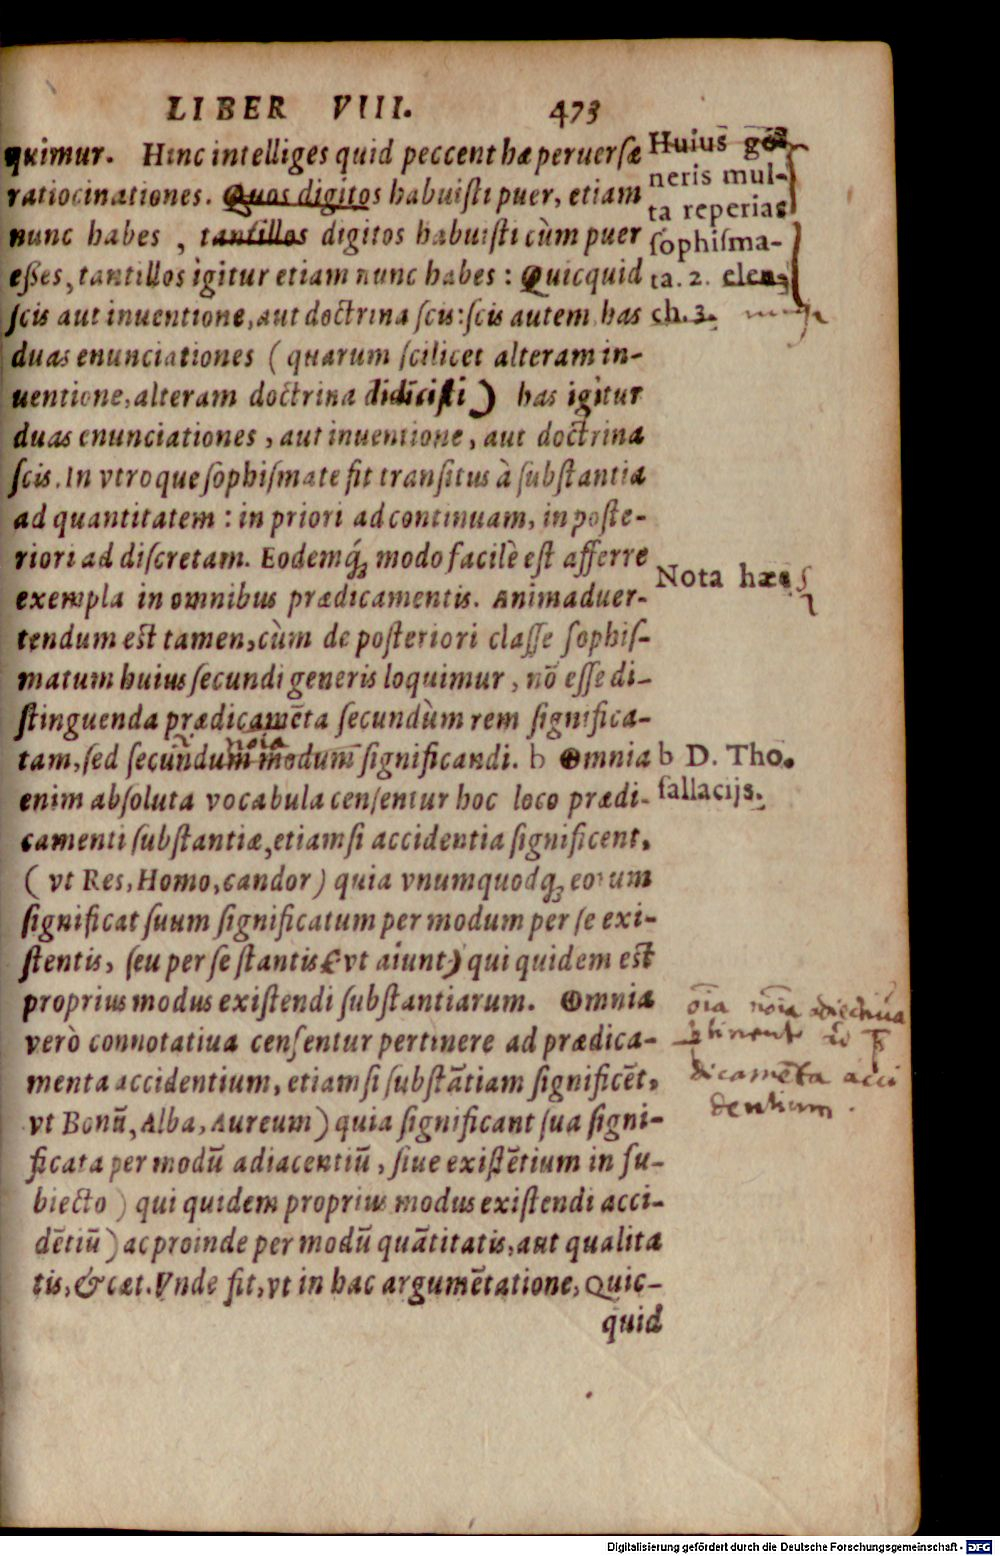 LIBER VIII. 473
quimur. Hinc intelliges quid peccent hæ peruersæ
ratiocinationes. Quos digitos habuisti puer, etiam
nunc habes, tantillos digitos habuisti cùm puer
esses, tantillos igitur etiam nunc habes: Quicquid
scis aut inuentione, aut doctrina scis: scis autem has
duas enunciationes (quarum scilicet alteram in-
uentione, alteram doctrina didicisti) has igitur
duas enunciationes, aut inuentione, aut doctrina
scis. In vtroque sophismate fit transitus à substantia
ad quantitatem: in priori ad continuam, in poste-
riori ad discretam. Eodemq́ꝫ modo facilè est afferre
exempla in omnibus prædicamentis. Animaduer-
tendum est tamen, cùm de posteriori classe sophis-
matum huius secundi generis loquimur, nō esse di-
stinguenda prædicamēta secundùm rem significa-
tam, sed secundum modum significandi. b Omnia
enim absoluta vocabula censentur hoc loco prædi-
camenti substantiæ, etiamsi accidentia significent,
(vt Res, Homo, candor) quia vnumquodqꝫ eorum
significat suum significatum per modum per se exi-
stentis, seu per se stantis (vt aiunt) qui quidem est
proprius modus existendi substantiarum. Omnia
verò connotatiua censentur pertinere ad prædica-
menta accidentium, etiamsi substātiam significēt,
vt Bonū, Alba, Aureum) quia significant sua signi-
ficata per modū adiacentiū, siue existētium in su-
biecto) qui quidem proprius modus existendi acci-
dētiū) ac proinde per modū quātitatis, aut qualita
tis, & cæt. Vnde fit, vt in hac argumētatione, Quic-
quid
Huius ge-
neris mul-
ta reperias
sophisma-
ta. 2. elen-
ch. 3.
Nota hæc
b D. Tho.
fallacijs.
oīa noīa adiectiua
ꝑtinent ad p̄
dicamēta acci
dentium.
Digitalisierung gefördert durch die Deutsche Forschungsgemeinschaft - DFG